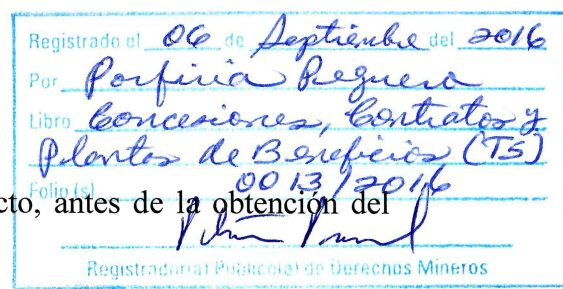 Registrado el 06 de Septiembre del 2016
Por Porfiria Reguera
Libro Concesiones, Contratos y
Plantas de Beneficios (TS)
Folio (s) 0013/2016
cto, antes de la obtención del
Registrador(a) Público(a) de Derechos Mineros